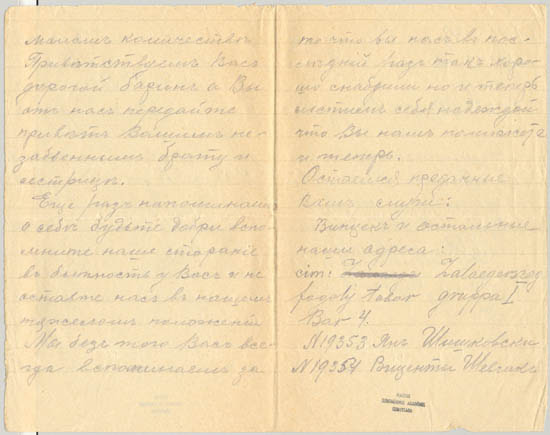 маломъ количествѣ
Привѣтствуемъ Васъ
дорогой баринъ а Вы
отъ насъ передайте
привѣтъ Вашимъ не-
забвеннымъ брату и
сестрицѣ.
Еще разъ напоминаемъ
о себѣ будьте добри вспо-
мните наше стараніе
въ бытность у Васъ и не
оставте насъ въ нашемъ
тяжеломъ положеніи
Мы безъ того Васъ все-
гда вспоминаемъ за
то что вы насъ въ пос-
лѣдній разъ такъ хоро-
шо снабдили но и теперь
льстимъ себя надеждой
что Вы намъ поможете
и теперь.
Остаемся преданные
Вамъ слуги:
и остальные
наши адреса:
ст: Zalaegerszeg
fogoly tabor gruppa I
Bar 4.
N 19353 Янъ Шишковски
N 19354 Вицентій Шевчикъ